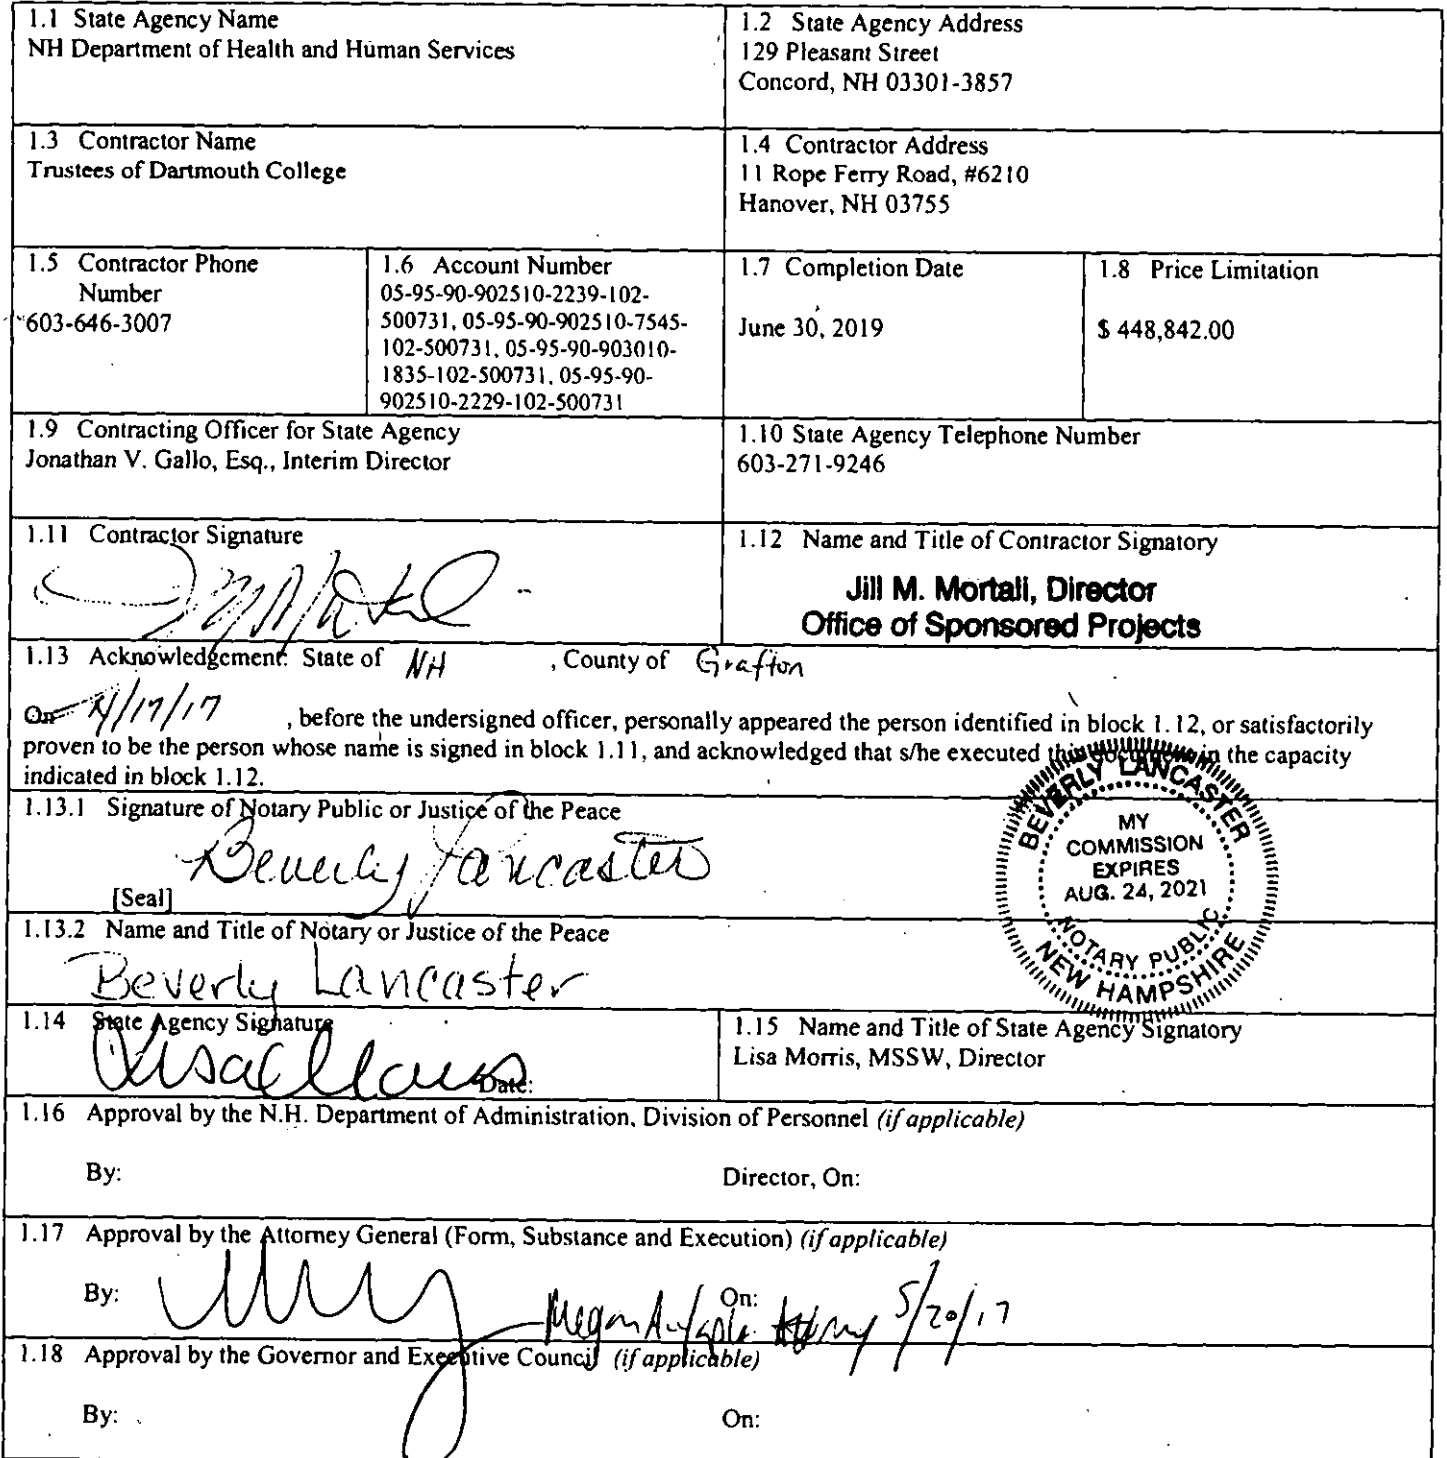 1.1 State Agency Name
NH Department of Health and Human Services
1.2 State Agency Address
129 Pleasant Street
Concord, NH 03301-3857
1.3 Contractor Name
Trustees of Dartmouth College
1.4 Contractor Address
11 Rope Ferry Road, #6210
Hanover, NH 03755
1.5 Contractor Phone
Number
603-646-3007
1.6 Account Number
05-95-90-902510-2239-102-
500731, 05-95-90-902510-7545-
102-500731, 05-95-90-903010-
1835-102-500731, 05-95-90-
902510-2229-102-500731
1.7 Completion Date
June 30, 2019
1.8 Price Limitation
$ 448,842.00
1.9 Contracting Officer for State Agency
Jonathan V. Gallo, Esq., Interim Director
1.10 State Agency Telephone Number
603-271-9246
1.11 Contractor Signature
1.12 Name and Title of Contractor Signatory
Jill M. Mortali, Director
Office of Sponsored Projects
1.13 Acknowledgement: State of NH , County of Grafton
On 4/17/17 , before the undersigned officer, personally appeared the person identified in block 1.12, or satisfactorily
proven to be the person whose name is signed in block 1.11, and acknowledged that s/he executed this document in the capacity
indicated in block 1.12.
1.13.1 Signature of Notary Public or Justice of the Peace
Beverly Lancaster
[Seal]
BEVERLY LANCASTER
MY
COMMISSION
EXPIRES
AUG. 24, 2021
NOTARY PUBLIC
NEW HAMPSHIRE
1.13.2 Name and Title of Notary or Justice of the Peace
Beverly Lancaster
1.14 State Agency Signature
Date:
1.15 Name and Title of State Agency Signatory
Lisa Morris, MSSW, Director
1.16 Approval by the N.H. Department of Administration, Division of Personnel (if applicable)
By:
Director, On:
1.17 Approval by the Attorney General (Form, Substance and Execution) (if applicable)
By:
Megan A.
On:
5/20/17
1.18 Approval by the Governor and Executive Council (if applicable)
By:
On: